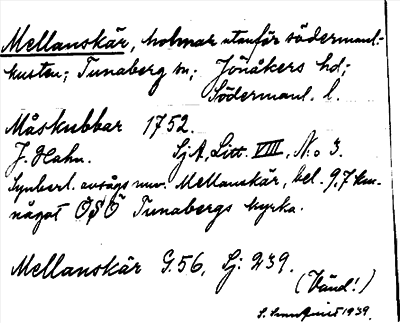 Mellanskär, holmar utanför södermanl.-
kusten; Tunaberg sn; Jönåkers hd;
Södermanl. l.
Måskubbar 1752.
J. Hahn. SjA, Litt. VIII, N:o 3.
Synbarl. avsågs nuv. Mellanskär, bel. 9,7 km.
något OSO Tunabergs kyrka.
Mellanskär G.56, Sj: 239.
(Vänd!)
1939.